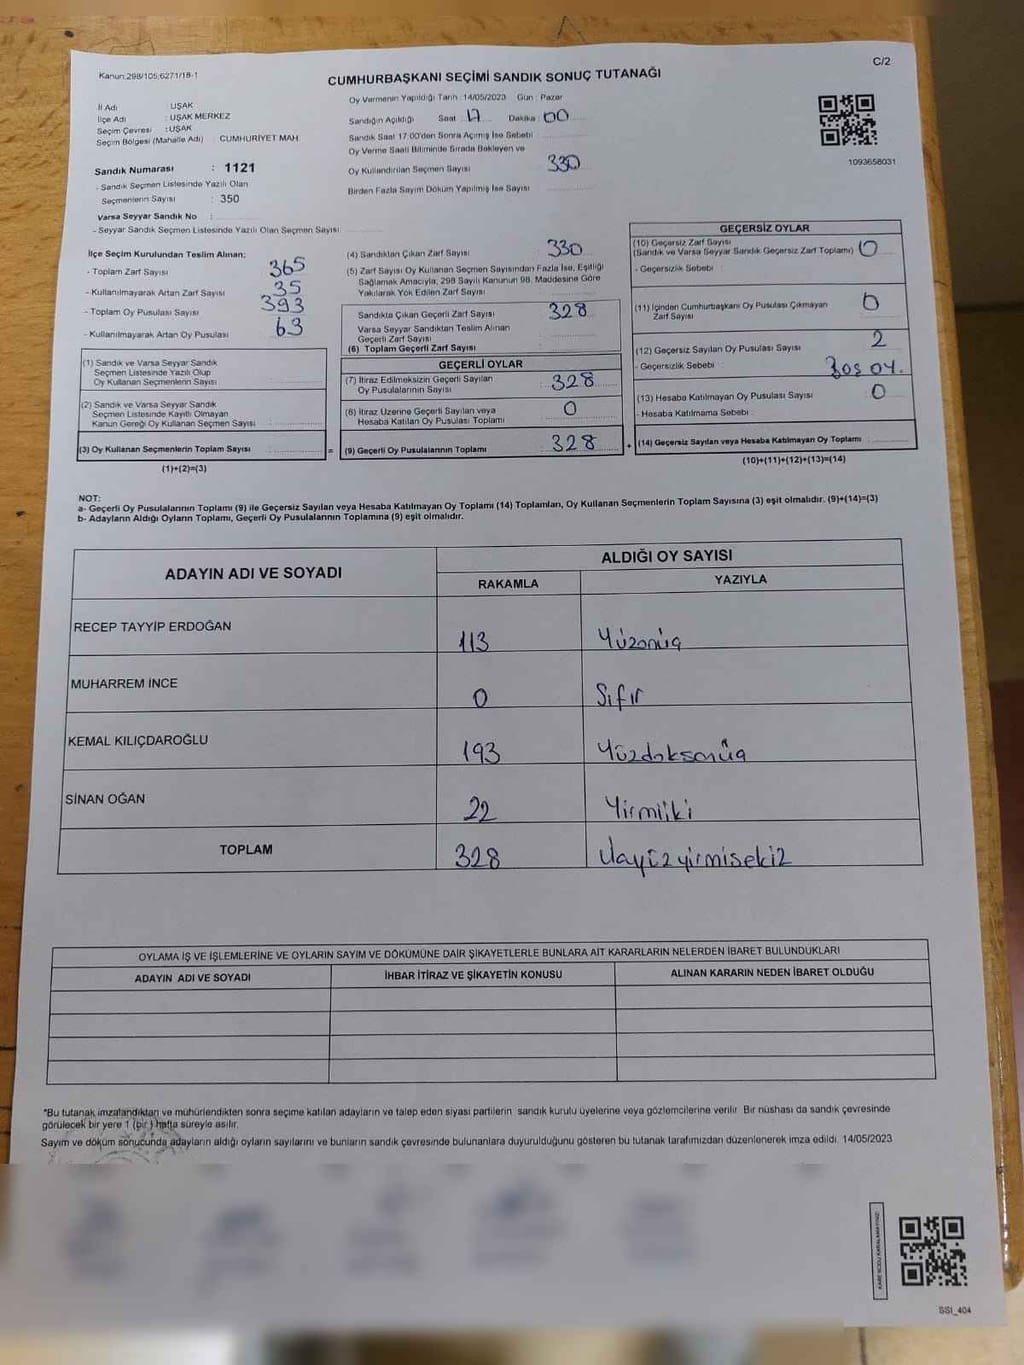 Kanun:298/105;6271/18-1
C/2
CUMHURBAŞKANI SEÇİMİ SANDIK SONUÇ TUTANAĞI
İl Adı : UŞAK
İlçe Adı : UŞAK MERKEZ
Seçim Çevresi : UŞAK
Seçim Bölgesi (Mahalle Adı) CUMHURİYET MAH
Sandık Numarası : 1121
- Sandık Seçmen Listesinde Yazılı Olan
Seçmenlerin Sayısı : 350
Varsa Seyyar Sandık No :
- Seyyar Sandık Seçmen Listesinde Yazılı Olan Seçmen Sayısı:
Oy Vermenin Yapıldığı Tarih :14/05/2023 Gün : Pazar
Sandığın Açıldığı Saat 17 Dakika 00
Sandık Saat 17.00'den Sonra Açımış İse Sebebi
Oy Verme Saati Bitiminde Sırada Bekleyen ve
Oy Kullandırılan Seçmen Sayısı 330
Birden Fazla Sayım Döküm Yapılmış İse Sayısı
1093658031
İlçe Seçim Kurulundan Teslim Alınan;
- Toplam Zarf Sayısı : 365
- Kullanılmayarak Artan Zarf Sayısı : 35
- Toplam Oy Pusulası Sayısı : 393
- Kullanılmayarak Artan Oy Pusulası : 63
(1) Sandık ve Varsa Seyyar Sandık
Seçmen Listesinde Yazılı Olup
Oy Kullanan Seçmenlerin Sayısı :
(2) Sandık ve Varsa Seyyar Sandık
Seçmen Listesinde Kayıtlı Olmayan
Kanun Gereği Oy Kullanan Seçmen Sayısı :
(3) Oy Kullanan Seçmenlerin Toplam Sayısı :
(1)+(2)=(3)
(4) Sandıktan Çıkan Zarf Sayısı : 330
(5) Zarf Sayısı Oy Kullanan Seçmen Sayısından Fazla İse, Eşitliği
Sağlamak Amacıyla, 298 Sayılı Kanunun 98. Maddesine Göre
Yakılarak Yok Edilen Zarf Sayısı :
Sandıkta Çıkan Geçerli Zarf Sayısı : 328
Varsa Seyyar Sandıktan Teslim Alınan
Geçerli Zarf Sayısı :
(6) Toplam Geçerli Zarf Sayısı :
GEÇERLİ OYLAR
(7) İtiraz Edilmeksizin Geçerli Sayılan
Oy Pusulalarının Sayısı : 328
(8) İtiraz Üzerine Geçerli Sayılan veya
Hesaba Katılan Oy Pusulası Toplamı : 0
= (9) Geçerli Oy Pusulalarının Toplamı : 328 +
GEÇERSİZ OYLAR
(10) Geçersiz Zarf Sayısı
(Sandık ve Varsa Seyyar Sandık Geçersiz Zarf Toplamı) : 0
- Geçersizlik Sebebi :
(11) İçinden Cumhurbaşkanı Oy Pusulası Çıkmayan
Zarf Sayısı : 0
(12) Geçersiz Sayılan Oy Pusulası Sayısı : 2
- Geçersizlik Sebebi : Boş oy.
(13) Hesaba Katılmayan Oy Pusulası Sayısı : 0
- Hesaba Katılmama Sebebi :
(14) Geçersiz Sayılan veya Hesaba Katılmayan Oy Toplamı :
(10)+(11)+(12)+(13)=(14)
NOT:
a- Geçerli Oy Pusulalarının Toplamı (9) ile Geçersiz Sayılan veya Hesaba Katılmayan Oy Toplamı (14) Toplamları, Oy Kullanan Seçmenlerin Toplam Sayısına (3) eşit olmalıdır. (9)+(14)=(3)
b- Adayların Aldığı Oyların Toplamı, Geçerli Oy Pusulalarının Toplamına (9) eşit olmalıdır.
ADAYIN ADI VE SOYADI ALDIĞI OY SAYISI
RAKAMLA YAZIYLA
RECEP TAYYİP ERDOĞAN 113 Yüzonüç
MUHARREM İNCE 0 Sıfır
KEMAL KILIÇDAROĞLU 193 Yüzdoksanüç
SİNAN OĞAN 22 Yirmiiki
TOPLAM 328 Üçyüzyirmisekiz
OYLAMA İŞ VE İŞLEMLERİNE VE OYLARIN SAYIM VE DÖKÜMÜNE DAİR ŞİKAYETLERLE BUNLARA AİT KARARLARIN NELERDEN İBARET BULUNDUKLARI
ADAYIN ADI VE SOYADI İHBAR İTİRAZ VE ŞİKAYETİN KONUSU ALINAN KARARIN NEDEN İBARET OLDUĞU
*Bu tutanak imzalandıktan ve mühürlendikten sonra seçime katılan adayların ve talep eden siyasi partilerin sandık kurulu üyelerine veya gözlemcilerine verilir. Bir nüshası da sandık çevresinde
görülecek bir yere 1 (bir) hafta süreyle asılır.
Sayım ve döküm sonucunda adayların aldığı oyların sayılarını ve bunların sandık çevresinde bulunanlara duyurulduğunu gösteren bu tutanak tarafımızdan düzenlenerek imza edildi. 14/05/2023
KARE KODU KARALAMAYINIZ!
SSI_404